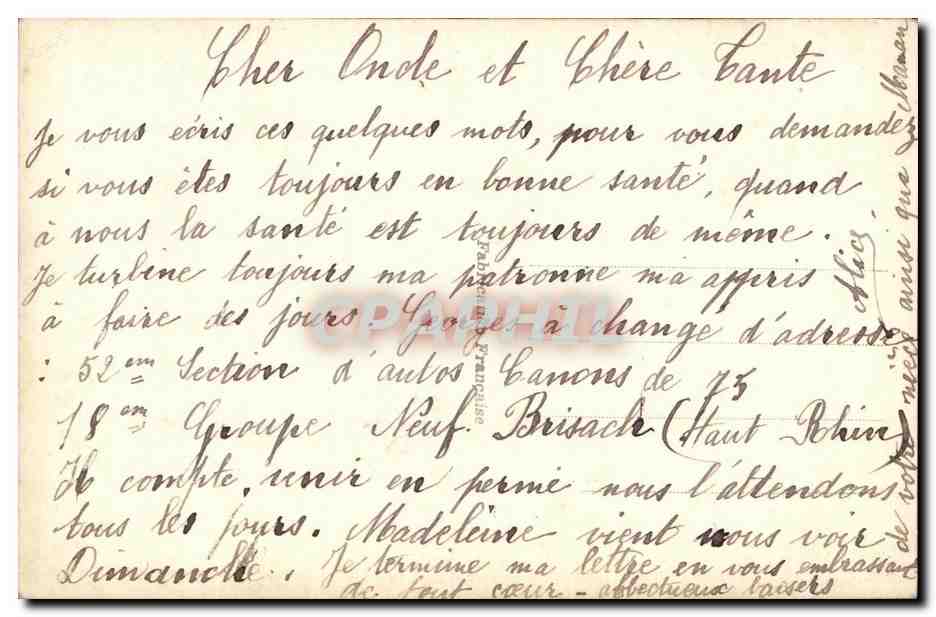 Cher Oncle et Chère Tante
Je vous écris ces quelques mots, pour vous demandez
si vous êtes toujours en bonne santé, quand
à nous la santé est toujours de même.
Je turbine toujours ma patronne ma appris
à faire des jours. Georges à changé d'adresse
: 52 em Section d'autos Canons de 75
18 em Groupe Neuf. Brisach (Haut Rhin)
Il compte, venir en perme nous l'attendons
tous les jours. Madeleine vient nous voir
Dimanche. Je termine ma lettre en vous embrassant
de tout cœur - affectueux baisers
de votre nièce ainsi que Maman
Alice
Fabrication Française
CPAPHIL